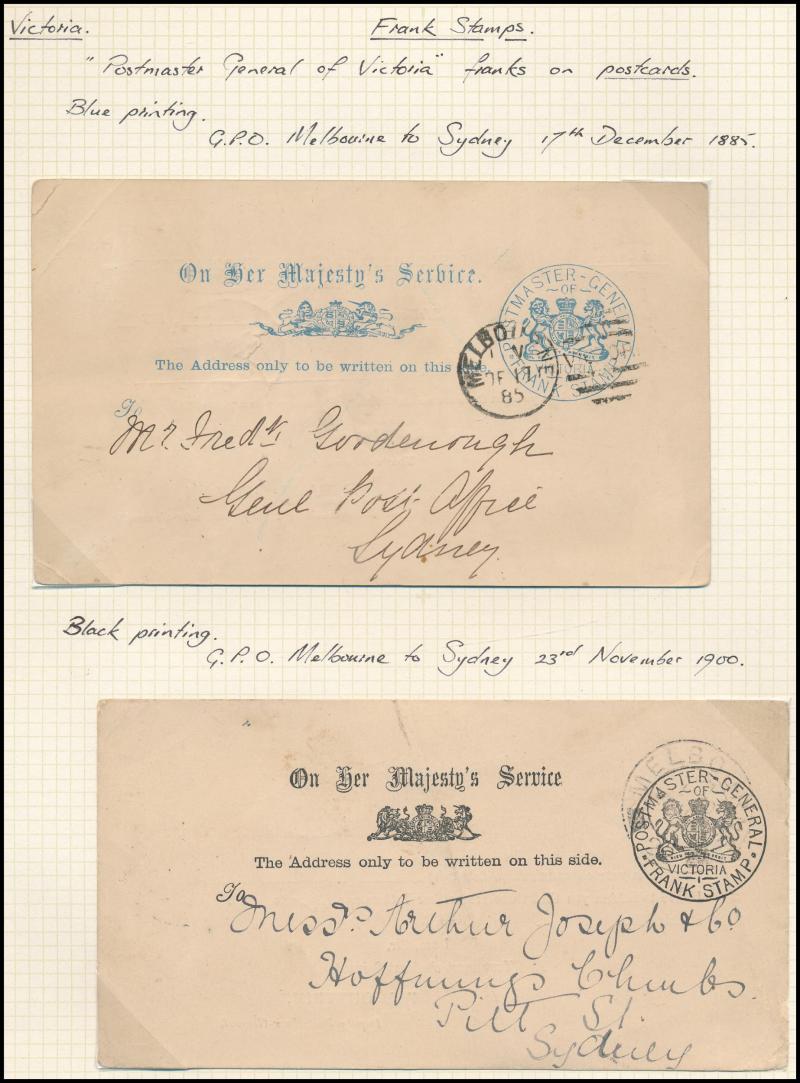 Victoria. Frank Stamps.
"Postmaster General of Victoria" franks on postcards.
Blue printing.
G.P.O. Melbourne to Sydney 17th December 1885.
On Her Majesty's Service.
POSTMASTER-GENERAL
OF
VICTORIA
FRANK STAMP
The Address only to be written on this side.
MELBOURNE
DE 17
85
To
Mr. Fredk. Goodenough
Genl Post Office
Sydney.
Black printing.
G.P.O. Melbourne to Sydney 23rd November 1900.
On Her Majesty's Service
MELBO
POSTMASTER-GENERAL
OF
VICTORIA
FRANK STAMP
The Address only to be written on this side.
To
Messrs. Arthur Joseph & Co
Hoffnungs Chmbs.
Pitt St.
Sydney